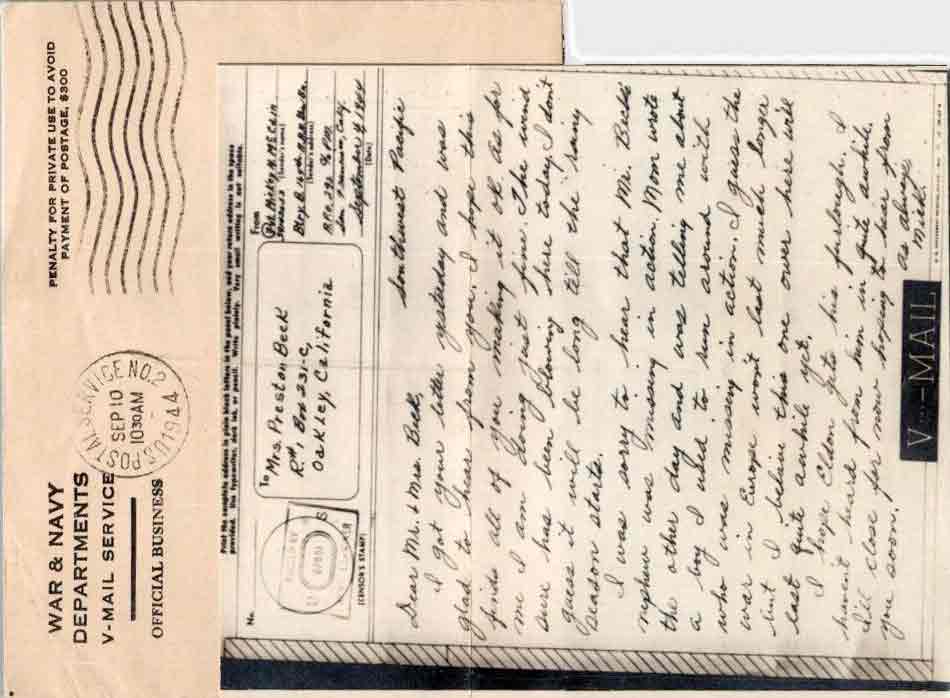 WAR & NAVY
DEPARTMENTS
V-MAIL SERVICE
OFFICIAL BUSINESS
U.S. POSTAL SERVICE NO. 2
SEP 10
10 30 AM
1944
PENALTY FOR PRIVATE USE TO AVOID
PAYMENT OF POSTAGE, $300
Print the complete address in plain block letters in the panel below, and your return address in the space
provided. Use typewriter, dark ink, or pencil. Write plainly. Very small writing is not suitable.
No.
(CENSOR'S STAMP)
To Mrs. Preston Beck
Rt 1, Box 231-C,
Oakley, California
From
Pvt. McCain
(Sender's name)
(Sender's address)
San Francisco, Calif.
September 4 1944
(Date)
Southwest Pacific
Dear Mr. & Mrs. Beck,
I got your letter yesterday and was
glad to hear from you. I hope this
finds all of you making it ok as for
me I am doing just fine. The wind
sure has been blowing here today I don't
guess it will be long till the rainy
season starts.
I was sorry to hear that Mr. Becks
nephew was missing in action. Mom wrote
the other day and was telling me about
a boy I used to run around with
who was missing in action. I guess the
war in Europe won't last much longer
but I believe this one over here will
last quite awhile yet.
I hope Eldon gets his furlough. I
havent heard from him in quite awhile.
I'll close for now hoping to hear from
you soon.
as always
Mick.
V-MAIL